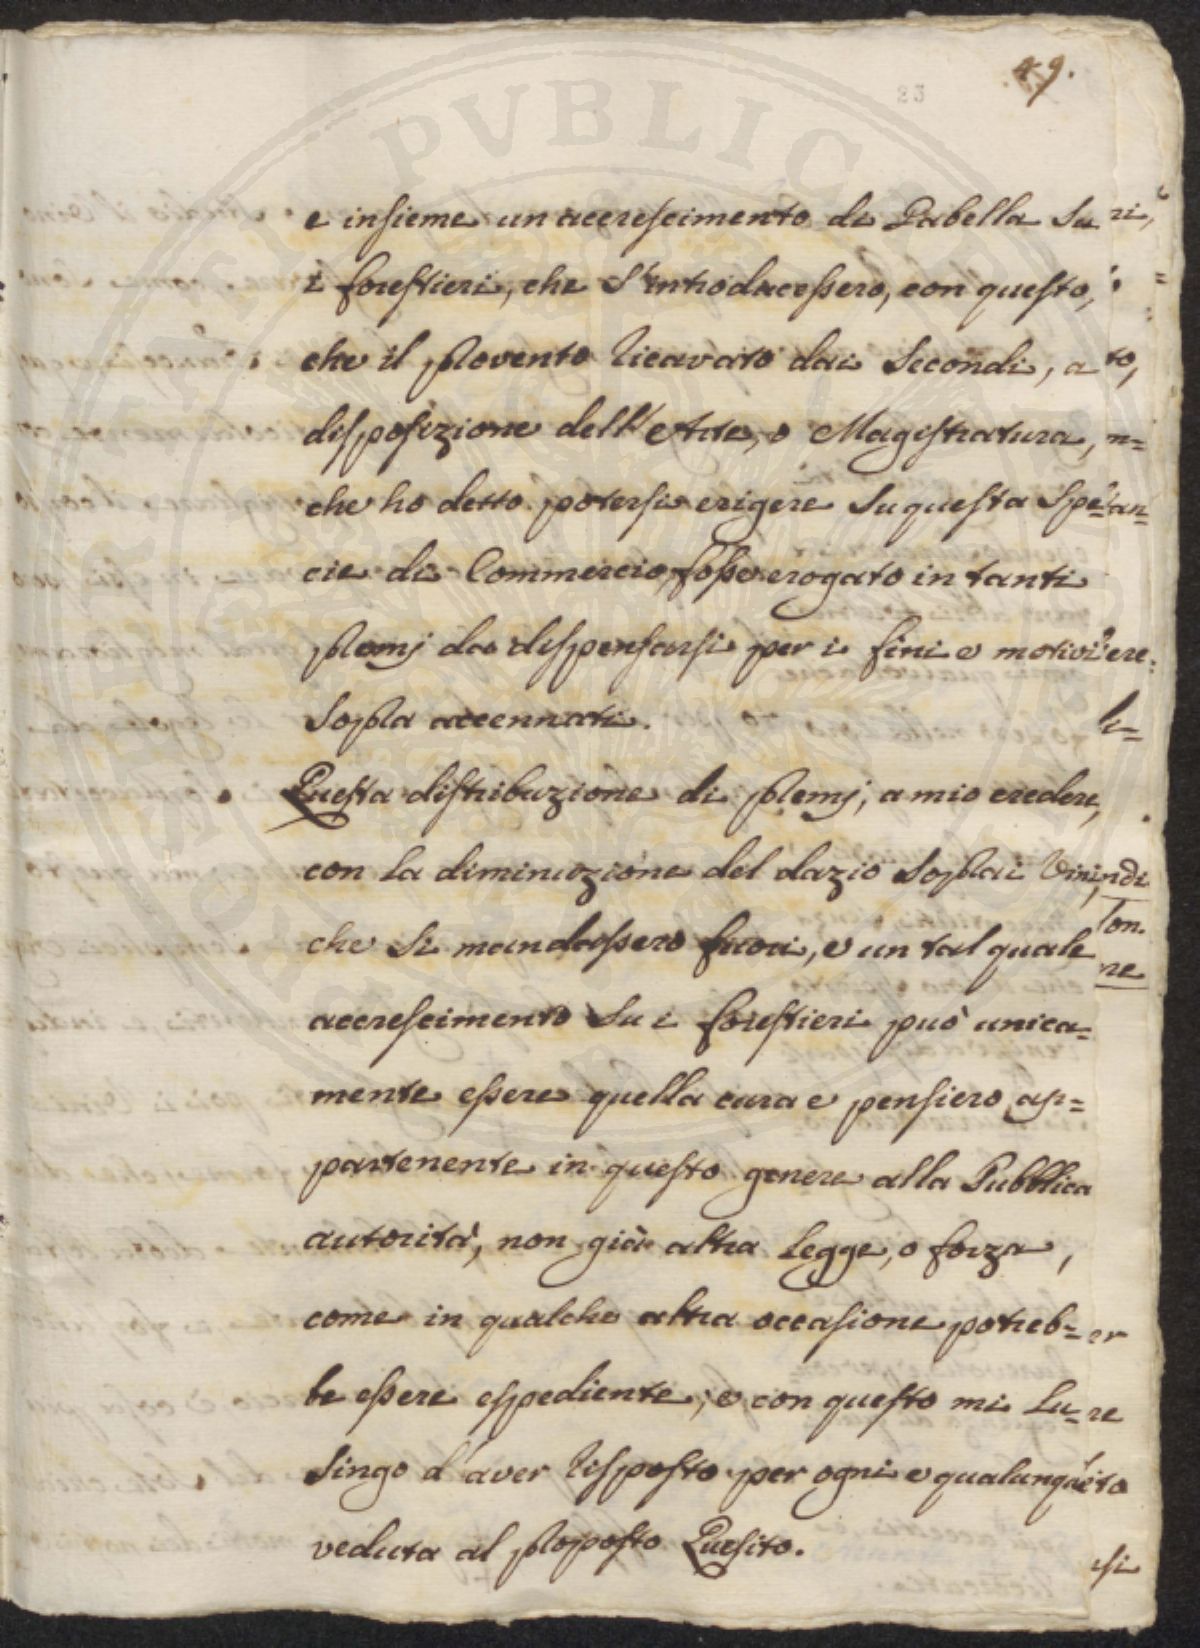 49.
23
e insieme un accrescimento di Gabella su
i forestieri, che s'introducessero, con questo,
che il provento ricavato dai secondi, a
disposizione dell'Arte, o Magistratura,
che ho detto potersi erigere su questa spe-
cie di Commercio, fosse erogato in tanti
premj da dispensarsi per i fini e motivi
sopra accennati.
Questa distribuzione di premj, a mio credere,
con la diminuzione del dazio sopra i Vini,
che si mandassero fuori, e un tal quale
accrescimento su i forestieri può unica=
mente essere quella cura e pensiero ap=
partenente in questo genere alla Pubblica
autorità, non già altra legge, o forza,
come in qualche altra occasione potreb=
be essere espediente; e con questo mi lu=
singo d'aver risposto per ogni e qualunque
veduta al proposto Quesito.
PVBLICAE